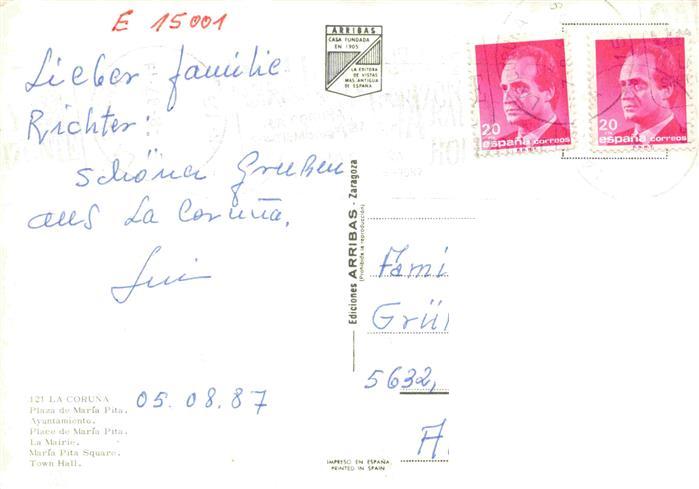 E 15001
Lieber familie
Richter:
schöner Gruben
aus La Coruña.
ARRIBAS
CASA FUNDADA
EN 1905
LA EDITORA
DE VISTAS
MAS ANTIGUA
DE ESPAÑA
20
PTA
españa correos
20
PTA
españa correos
Ediciones ARRIBAS - Zaragoza
(Prohibida la reproducción)
Fami
Grü
5632,
A
121 LA CORUÑA
Plaza de María Pita.
Ayuntamiento.
Place de María Pita.
La Mairie.
María Pita Square.
Town Hall.
05.08.87
IMPRESO EN ESPAÑA
PRINTED IN SPAIN